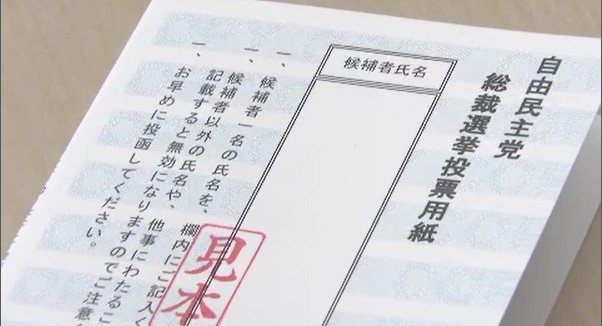 自由民主党
総裁選挙投票用紙
候補者氏名
一、候補者一名の氏名を、欄内にご記入く
一、候補者以外の氏名や、他事にわたるこ
記載すると無効になりますのでご注意
一、お早めに投函してください。
見本